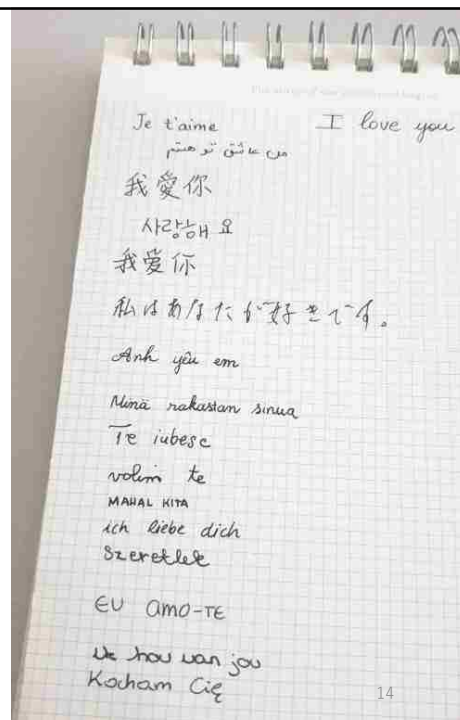 Je t'aime I love you
من عاشق تو هستم
我愛你
사랑해요
我爱你
私はあなたが好きです。
Anh yêu em
Minä rakastan sinua
Te iubesc
volim te
MAHAL KITA
ich liebe dich
Szeretlek
EU amo-TE
Ik hou van jou
Kocham Cię
14